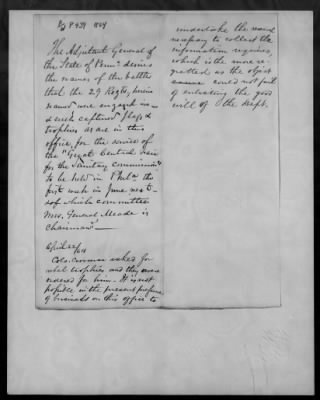 P 431 1864
The Adjutant General of
the State of Penna desires
the names of the battles
that the 29 Regts, herein
named were engaged in —
& such captured flags &
trophies as are in this
office, for the service of
the "Great Central Fair
for the Sanitary Commission"
to be held in Phila the
first week in June next —
of which committee
Mrs. General Meade is
Chairman —
April 22/64
Colo. asked for
rebel trophies and they were
for him. It is not
possible in the present pressure
of business on this office to
undertake the
necessary to collect the
information required,
which is the more re-
gretted as the object
named could not fail
of enlisting the good
will of the Dept.